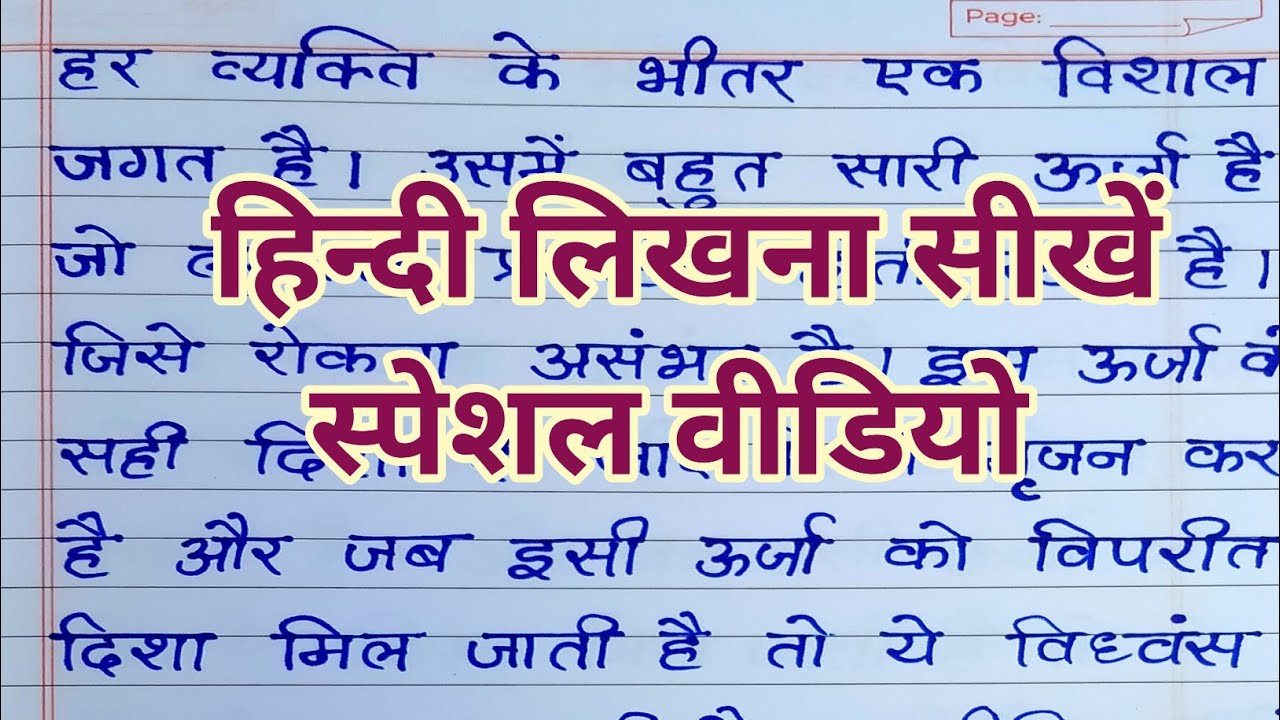 Page:
हर व्यक्ति के भीतर एक विशाल
जगत है। उसमें बहुत सारी ऊर्जा है
हिन्दी लिखना सीखें
जो है।
जिसे रोकना असंभव है। इस ऊर्जा
स्पेशल वीडियो
सही सृजन कर
है और जब इसी ऊर्जा को विपरीत
दिशा मिल जाती है तो ये विध्वंस